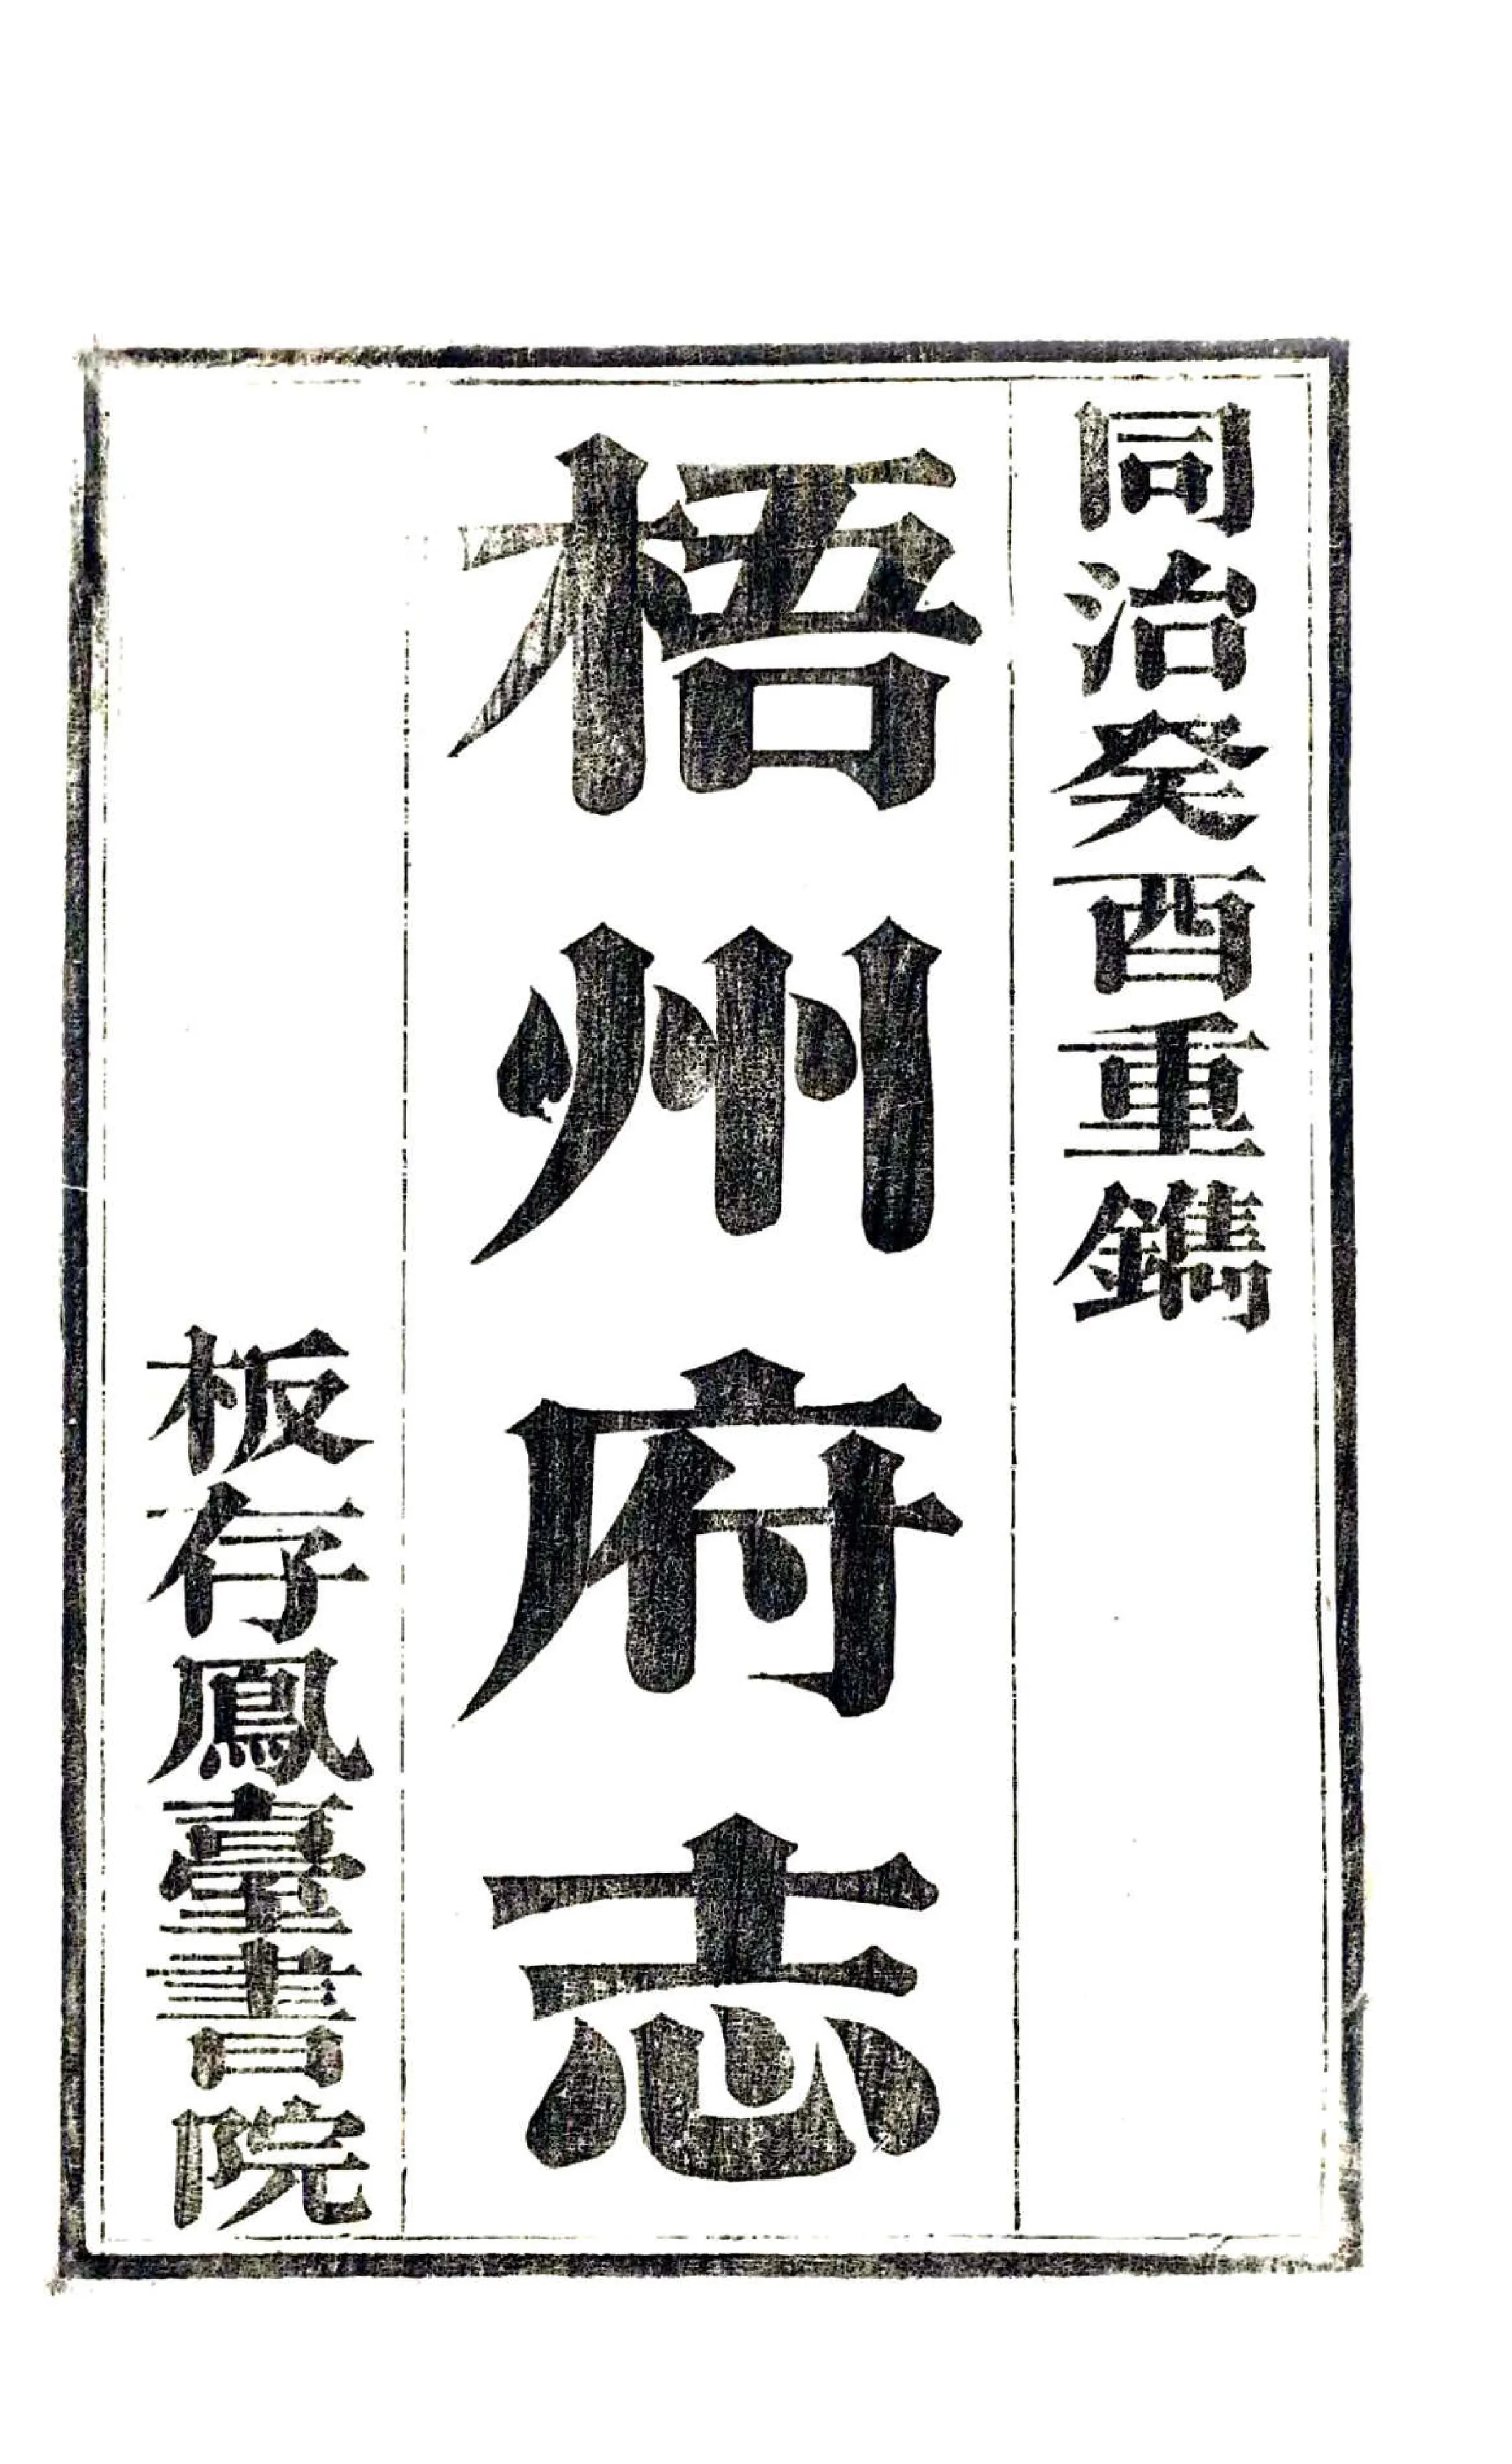 同治癸酉重鐫
梧州府志
板存鳳臺書院